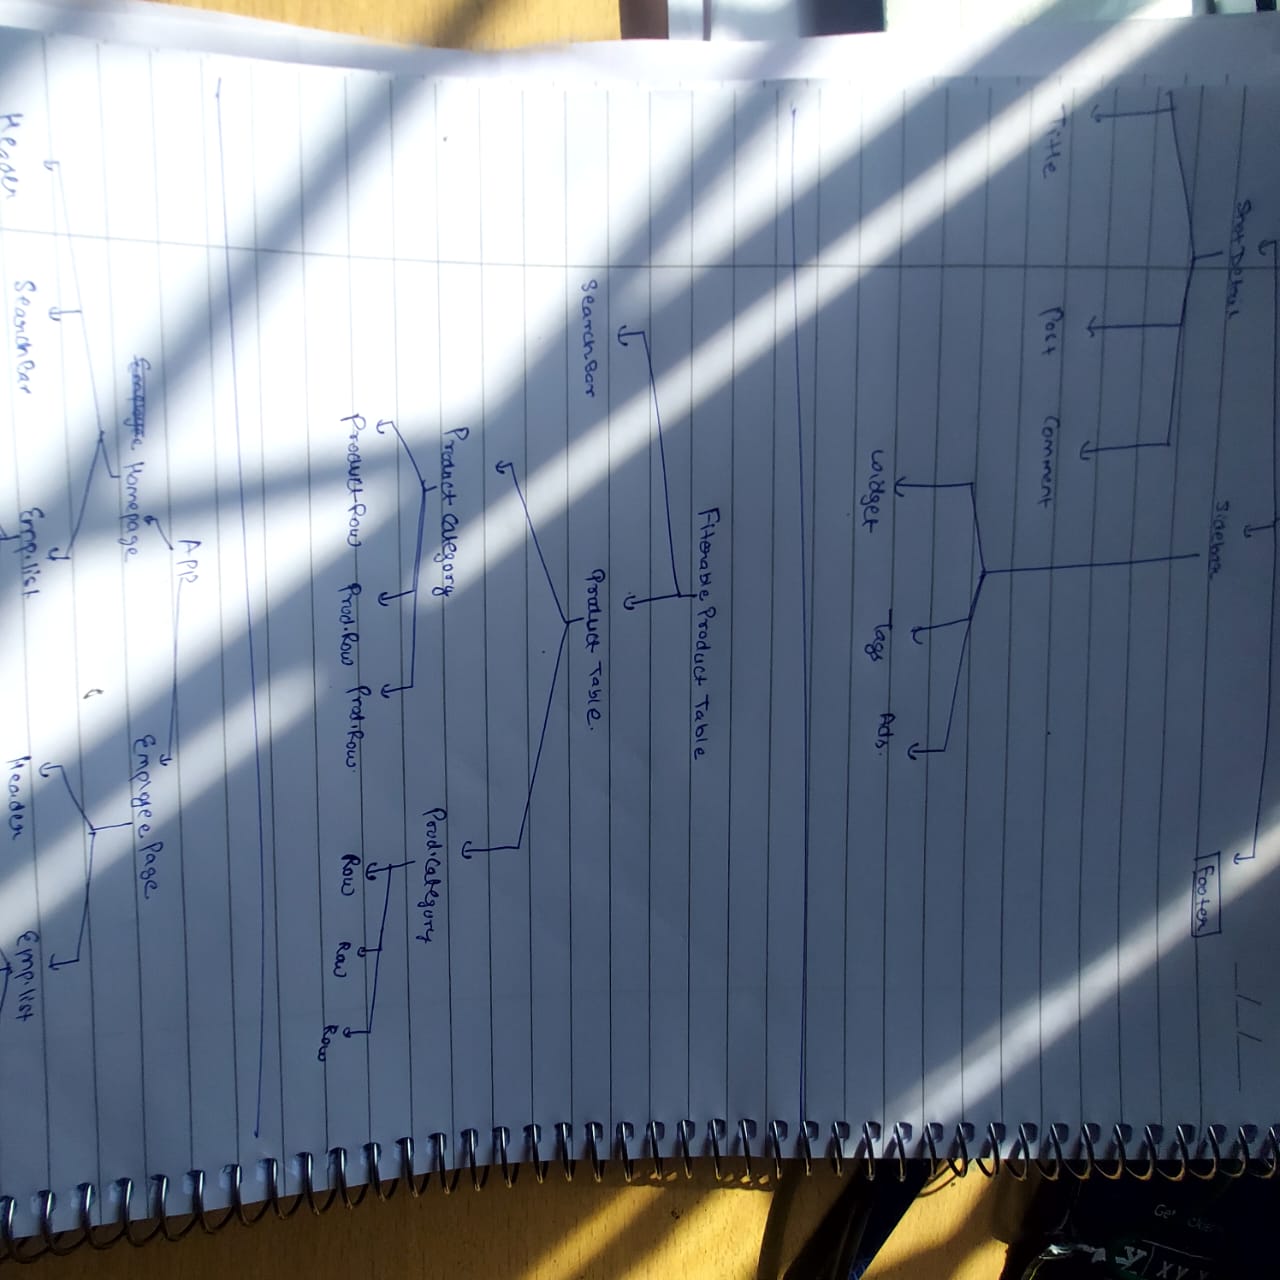 Shot Detail Sidebar Footer
Title Post Comment
Widget Tags Ads.
Filterable Product Table
SearchBar Product Table.
Product Category Prod.Category
Product Row Prod.Row Prod.Row. Row Row Row
APP
Homepage Employee Page
Header SearchBar Emp.list Header Emp.list